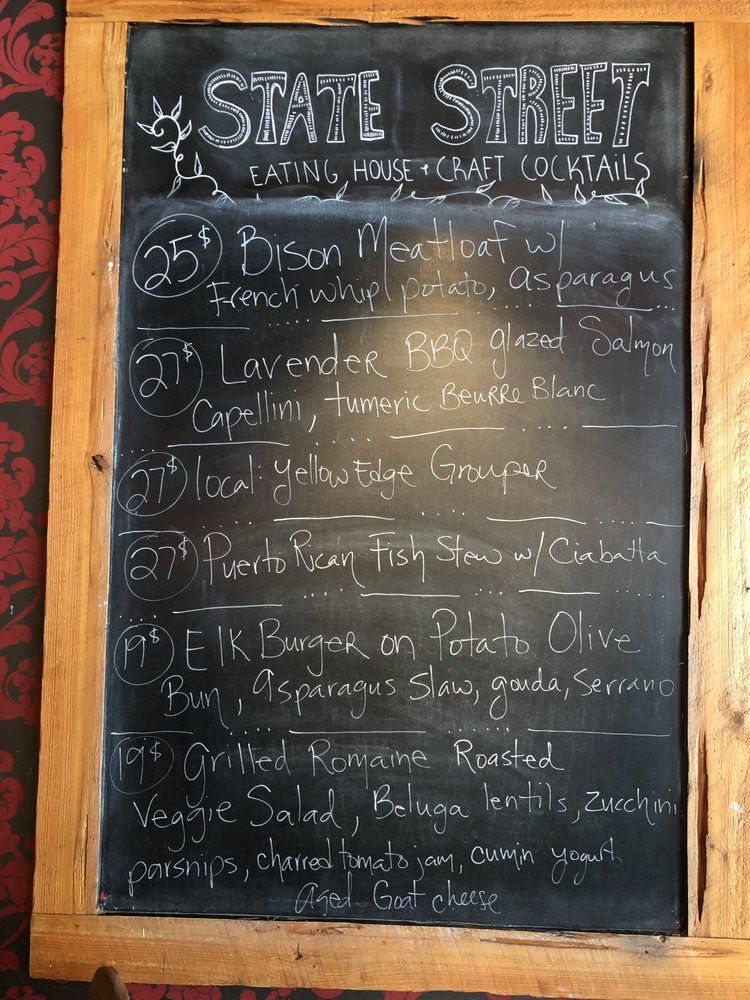 STATE STREET
EATING HOUSE + CRAFT COCKTAILS
25$ Bison Meatloaf w/
French whip potato, asparagus
27$ Lavender BBQ glazed Salmon
Capellini, tumeric Beurre Blanc
27$ local Yellow Edge Grouper
27$ Puerto Rican Fish Stew w/ Ciabatta
19$ Elk Burger on Potato Olive
Bun, asparagus slaw, gouda, serrano
19$ Grilled Romaine Roasted
Veggie Salad, Beluga lentils, zucchini
parsnips, charred tomato jam, cumin yogurt
Aged Goat cheese